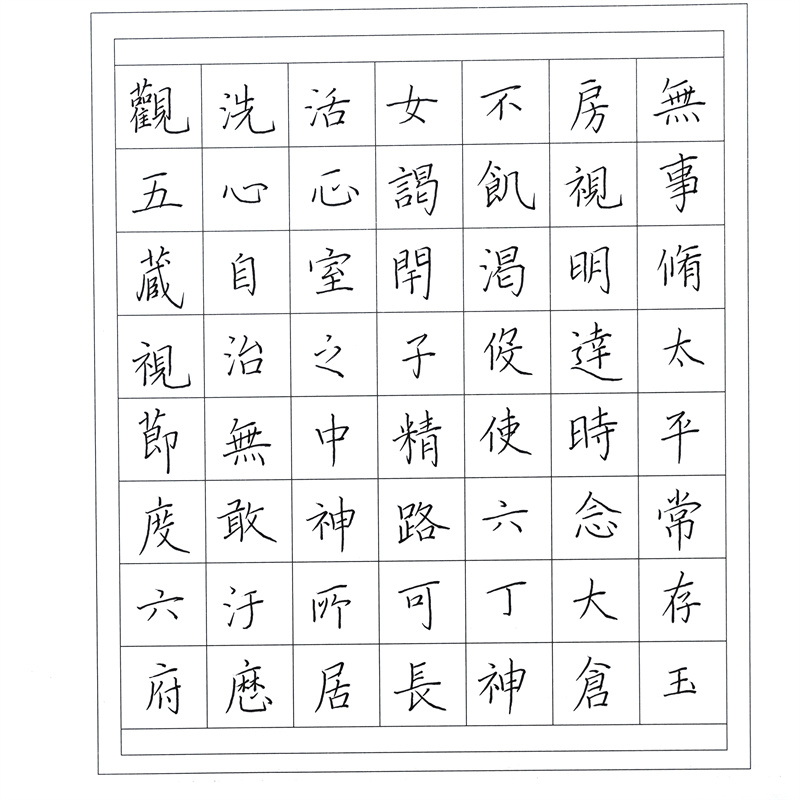 無事脩太平常存玉
房視明達時念大倉
不飢渴伇使六丁神
女謁閇子精路可長
活心室之中神所居
洗心自治無敢汙
觀五蔵視節度六府